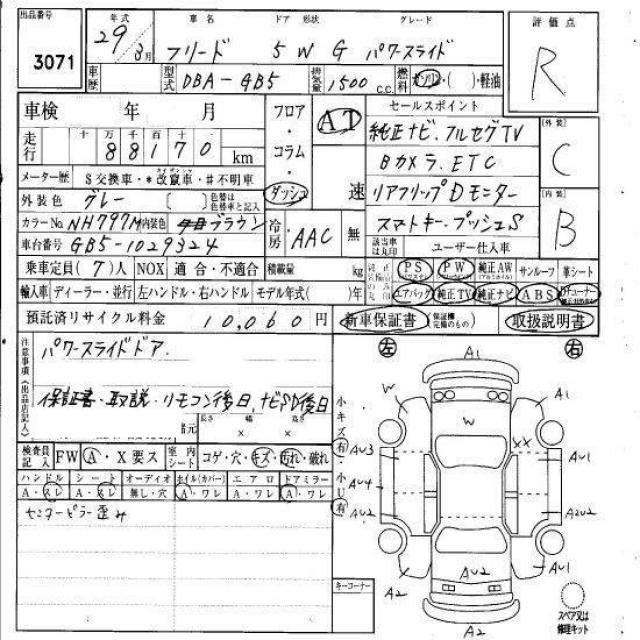 出品番号 年式 車名 ドア 形状 グレード 評価点
3071 29 8月 フリード 5 W G パワースライド R
車歴 型式 DBA-GB5 排気量 1500 c.c. 燃料 ガソリン・( )・軽油
車検 年 月 フロア・コラム・ダッシュ AT 速 セールスポイント
走行 十 万 千 百 十 88170 km
純正ナビ. フルセグTV
Bカメラ. ETC
リアフリップDモニター
スマートキー. プッシュS
[外装] C
[内装] B
メーター歴 $交換車・*改竄車・#不明車
外装色 グレー [ ] 色替は色替車と記入
カラーNo. NH797M 内装色 ブラウン 冷房 AAC 無
車台番号 GB5-1029324 該当車は丸印 ユーザー仕入車
乗車定員 (7)人 NOX 適合・不適合 積載量 kg PS PW 純正AW サンルーフ 革シート
輸入車 ディーラー・並行 左ハンドル・右ハンドル モデル年式( )年 エアバック 純正TV 純正ナビ ABS
預託済リサイクル料金 10,060 円 新車保証書 (保証欄完備のもの) 取扱説明書
注意事項(出品店記入) パワースライドドア.
保証書・取説・リモコン後日, ナビSD後日
諸元 長さ × 幅 × 高さ
検査員記入 FW A・X要ス 室内シート コゲ・穴・キズ・汚れ・破れ
ハンドル シート オーディオ ホイル(カバー) エアロ ドアミラー
A・スレ A・スレ 無し・穴 A・ワレ A・ワレ A・ワレ
センターピラー歪み
小キズ 有・小U 有
左 右
A1
W A1
W
XX
AU3 AU1
AU4
AU2 A2U2
AU2 AU1
A2
A2
キーコーナー
スペア又は修理キット